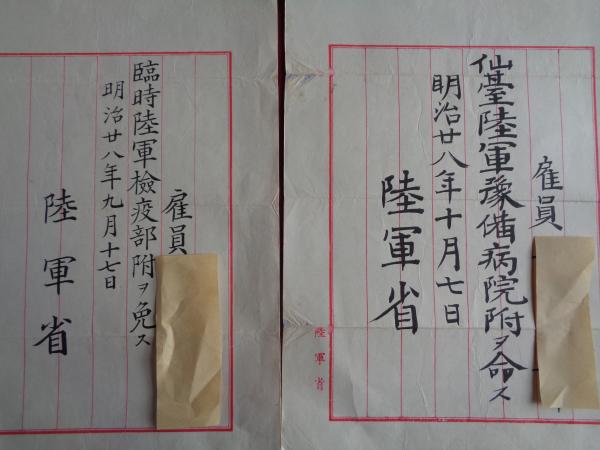 雇員
仙臺陸軍豫備病院附ヲ命ス
明治廿八年十月七日
陸軍省
陸軍省
雇員
臨時陸軍檢疫部附ヲ免ス
明治廿八年九月十七日
陸軍省